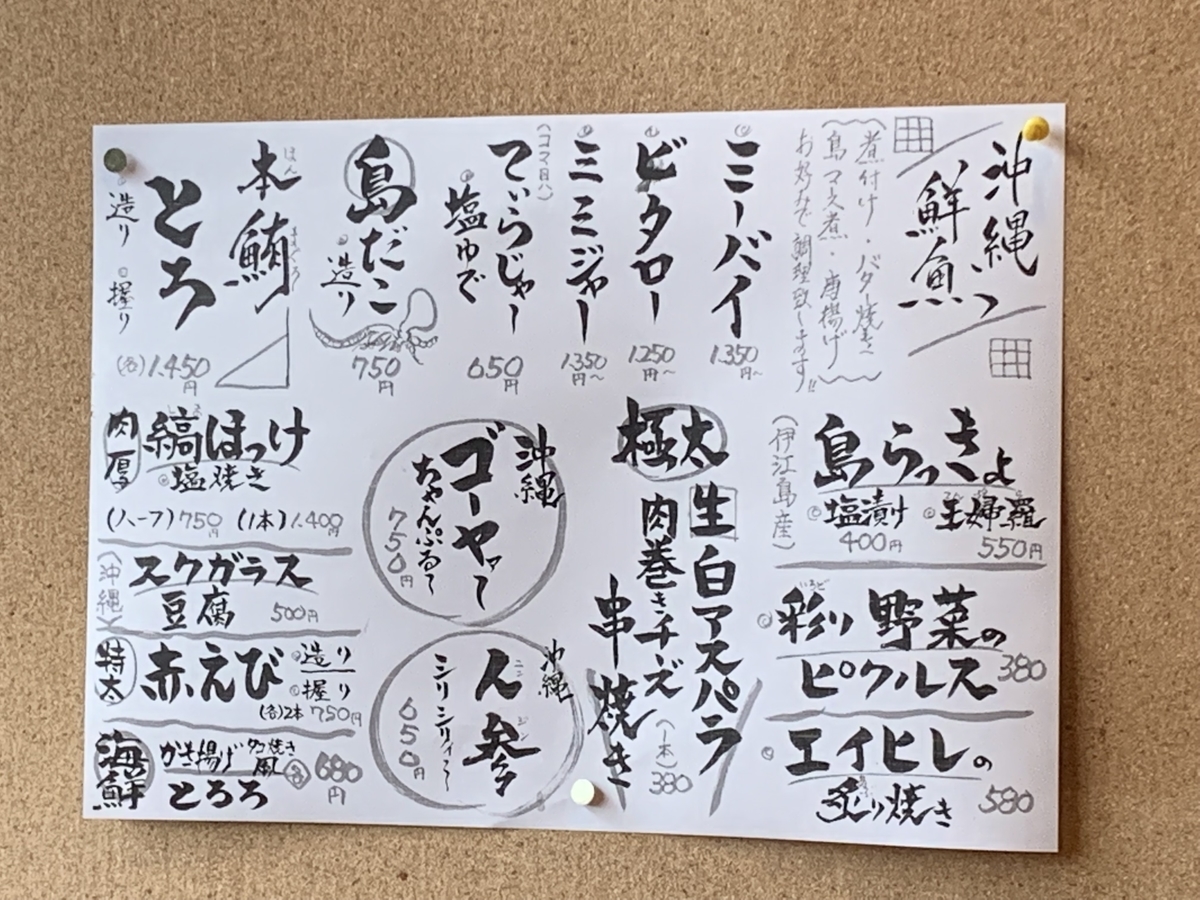 沖縄
鮮魚
煮付け・バター焼き
島マース煮・唐揚げ
お好みで調理致します!!
ミーバイ
1.350円~
ビタロー
1.250円~
ミミジャー
1.350円~
てぃらじゃー
(コマ貝)
塩ゆで
650円
島だこ
造り
750円
本鮪
ほん まぐろ
とろ
造り 握り
(各)1.450円
島らっきょ
(伊江島産)
塩漬け
400円
天婦羅
550円
彩り野菜の
いろど
ピクルス
380
エイヒレの
炙り焼き
580
極太
生白アスパラ
肉巻きチーズ
串焼き
(1本)
380
沖縄
ゴーヤァー
ちゃんぷるー
750円
沖縄
人参
ニン ジン
シリシリィー
650円
肉厚
縞ほっけ
しま
塩焼き
(ハーフ)750円 (1本)1.400円
(沖縄)
スクガラス
豆腐
500円
特大
赤えび
造り
握り
(各)2本 750円
海鮮
かき揚げ タコ焼き風
とろろ
各 680円